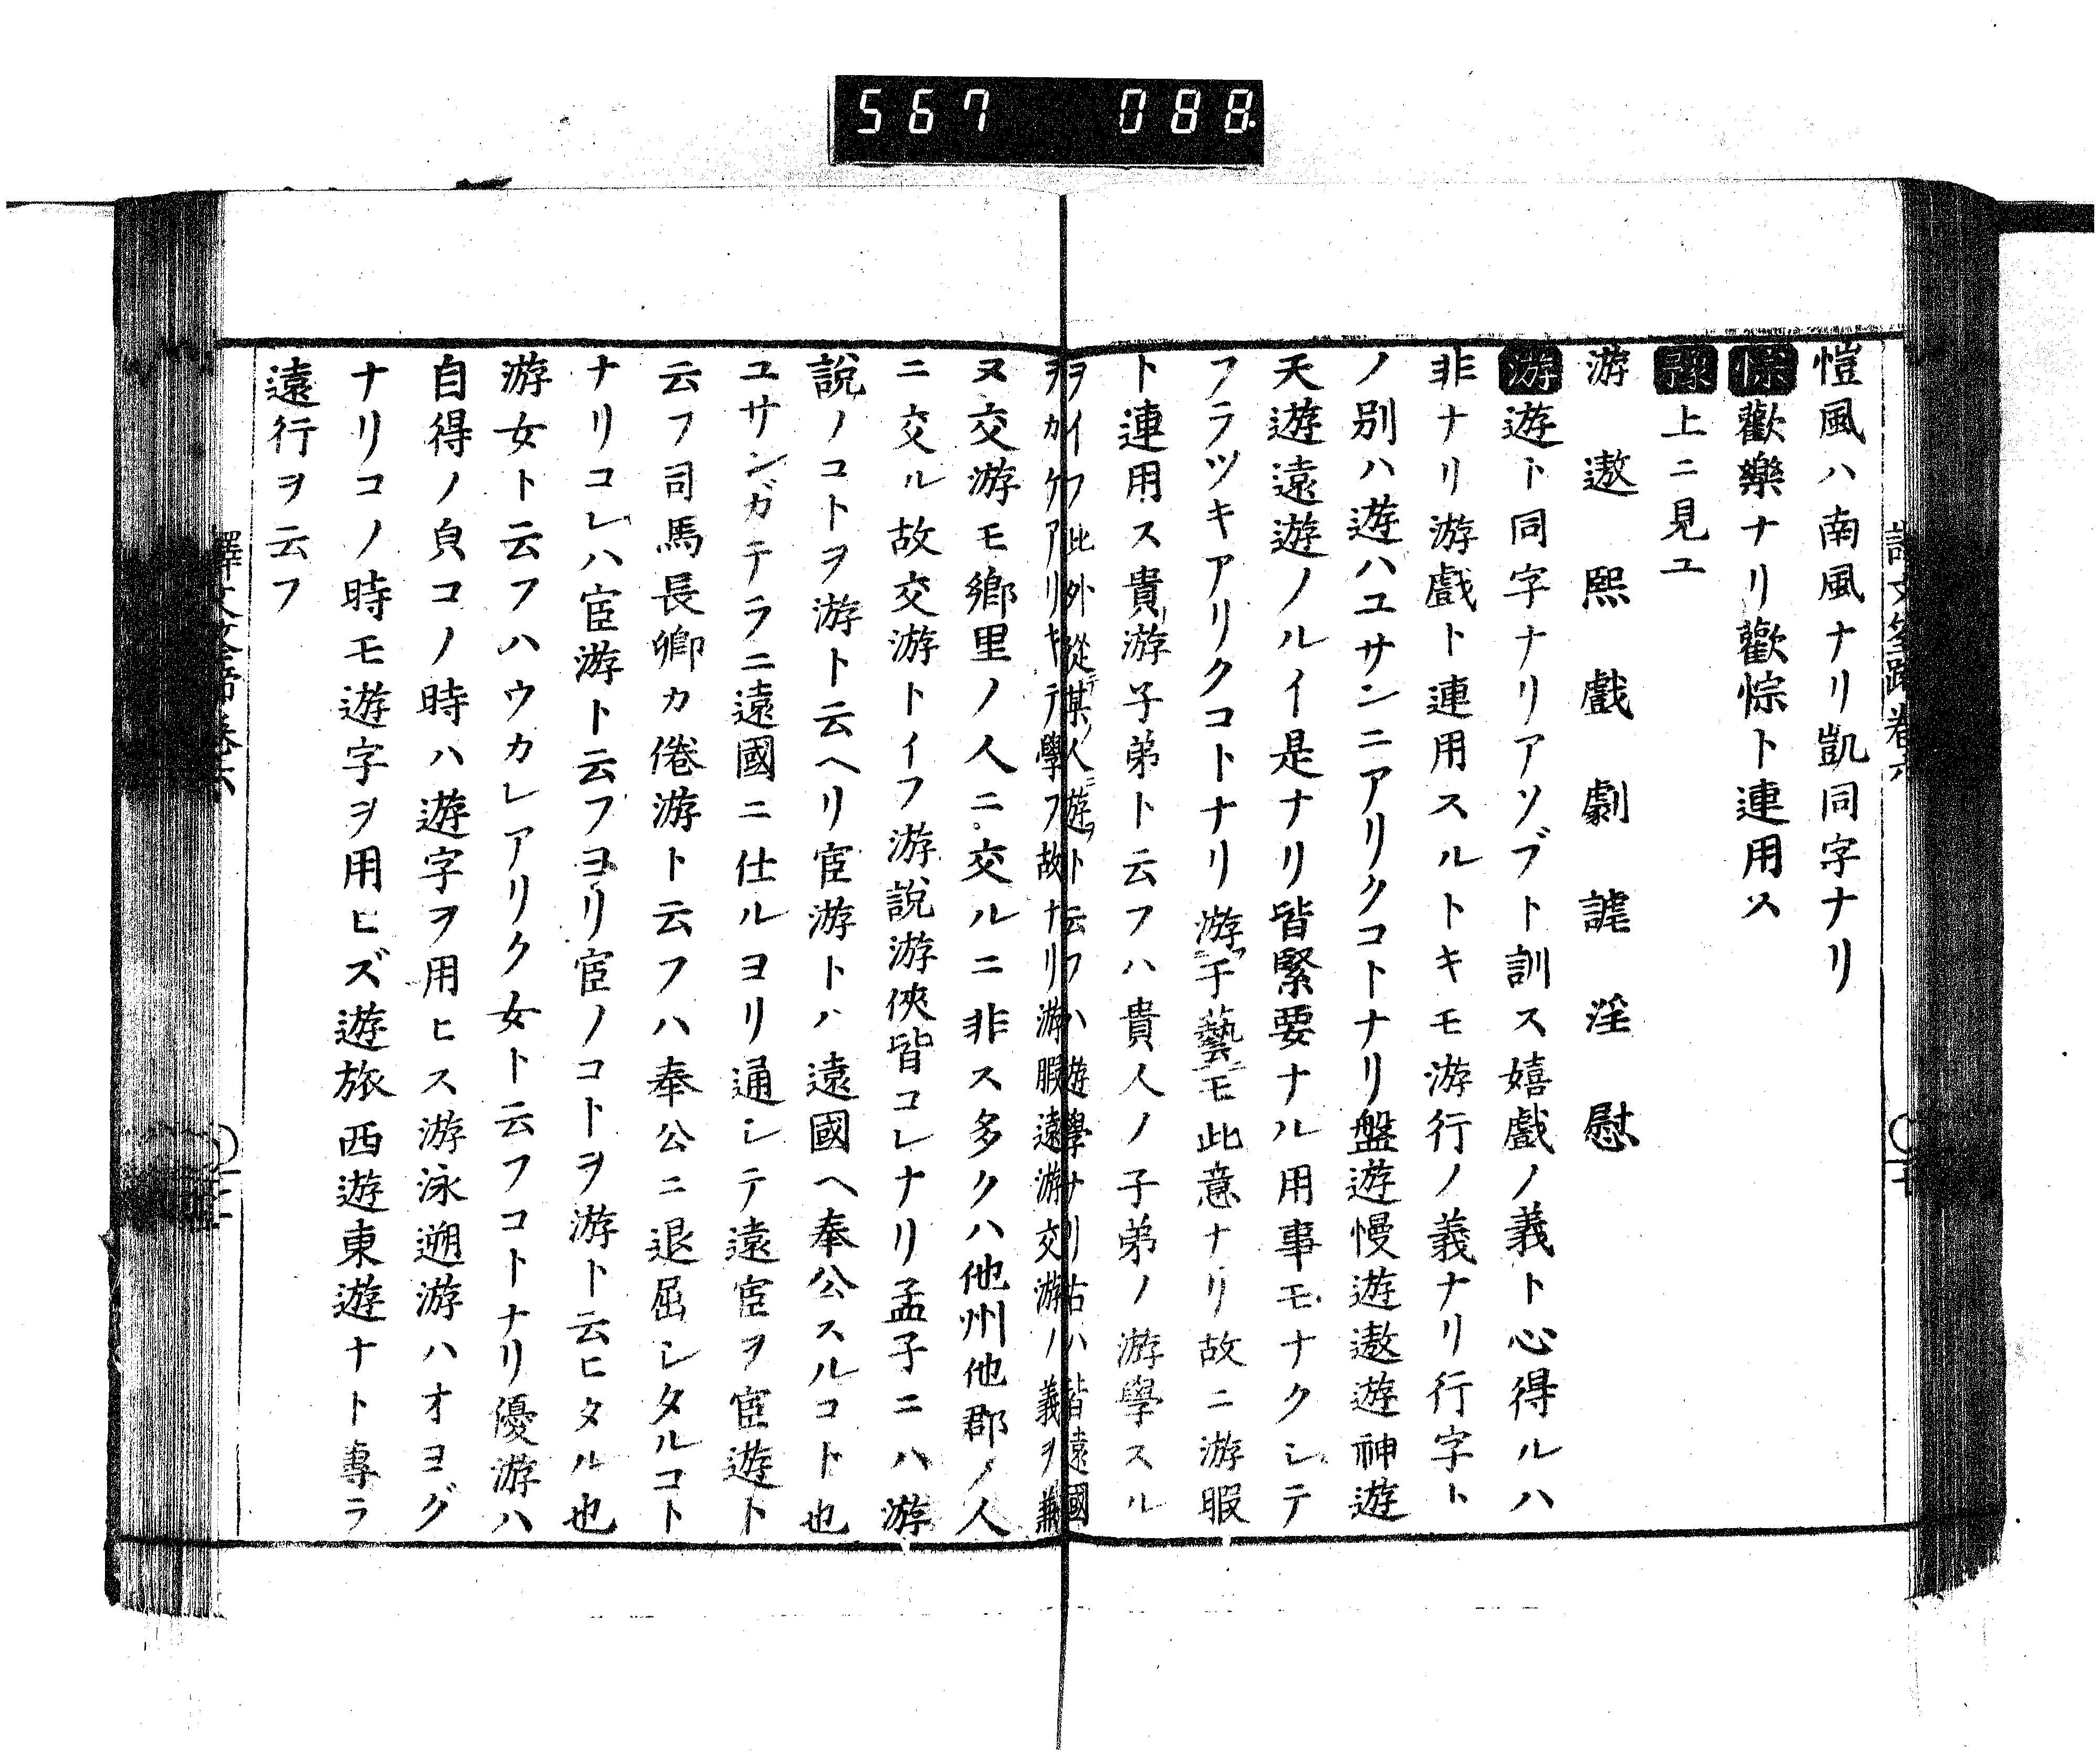 567 088
愷風ハ南風ナリ凱同字ナリ
悰歡樂ナリ歡悰ト連用ス
豫上ニ見ユ
游 遨 熙 戲 劇 謔 淫 慰
游遊ト同字ナリアソブト訓ス嬉戲ノ義ト心得ルハ
非ナリ游戲ト連用スルトキモ游行ノ義ナリ行字ト
ノ別ハ遊ハユサンニアリクコトナリ盤遊慢遊遨遊神遊
天遊遠遊ノルイ是ナリ皆緊要ナル用事モナクシテ
フラツキアリクコトナリ游于藝モ此意ナリ故ニ游暇
ト連用ス貴游子弟ト云フハ貴人ノ子弟ノ游學スル
ヲイフ此外從其人遊ト云フハ遊學ナリ古ハ皆遠國
ヲカケアリキテ學フ故ナリ游暇遠游交游ノ義ヲ兼
ヌ交游モ鄉里ノ人ニ交ルニ非ス多クハ他州他郡ノ人
ニ交ル故交游トイフ游說游俠皆コレナリ孟子ニハ游
說ノコトヲ游ト云ヘリ宦游トハ遠國ヘ奉公スルコト也
ユサンガテラニ遠國ニ仕ルヨリ通シテ遠宦ヲ宦遊ト
云フ司馬長卿カ倦游ト云フハ奉公ニ退屈シタルコト
ナリコレハ宦游ト云フヨリ宦ノコトヲ游ト云ヒタル也
游女ト云フハウカレアリク女ト云フコトナリ優游ハ
自得ノ皃コノ時ハ遊字ヲ用ヒス游泳遡游ハオヨグ
ナリコノ時モ遊字ヲ用ヒズ遊旅西遊東遊ナト專ラ
遠行ヲ云フ